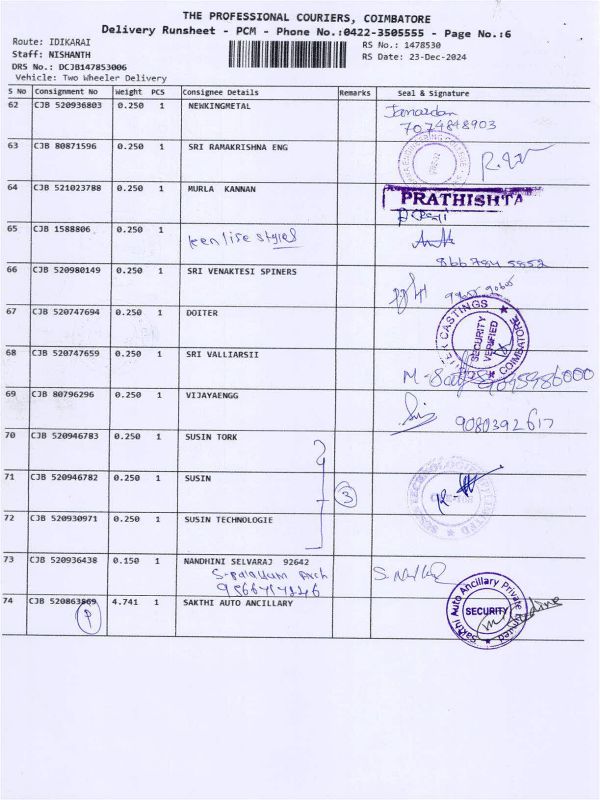 THE PROFESSIONAL COURIERS, COIMBATORE
Delivery Runsheet - PCM - Phone No.:0422-3505555 - Page No.:6
Route: IDIKARAI
RS No.: 1478530
Staff: NISHANTH
RS Date: 23-Dec-2024
DRS No.: DCJB147853006
Vehicle: Two Wheeler Delivery
S No Consignment No Weight PCS Consignee Details Remarks Seal & Signature
62 CJB 520936803 0.250 1 NEWKINGMETAL Janardan
7074848903
63 CJB 80871596 0.250 1 SRI RAMAKRISHNA ENG
64 CJB 521023788 0.250 1 MURLA KANNAN PRATHISHTA
65 CJB 1588806 0.250 1 keenlise styles
866 784 5852
66 CJB 520980149 0.250 1 SRI VENAKTESI SPINERS
67 CJB 520747694 0.250 1 DOITER
CASTINGS SECURITY VERIFIED COIMBATORE
68 CJB 520747659 0.250 1 SRI VALLIARSII
69 CJB 80796296 0.250 1 VIJAYAENGG
9080392617
70 CJB 520946783 0.250 1 SUSIN TORK
71 CJB 520946782 0.250 1 SUSIN 3
72 CJB 520930971 0.250 1 SUSIN TECHNOLOGIE
73 CJB 520936438 0.150 1 NANDHINI SELVARAJ 92642
74 CJB 520863869 4.741 1 SAKTHI AUTO ANCILLARY
P
Sakthi Auto Ancillary Private Limited
SECURITY